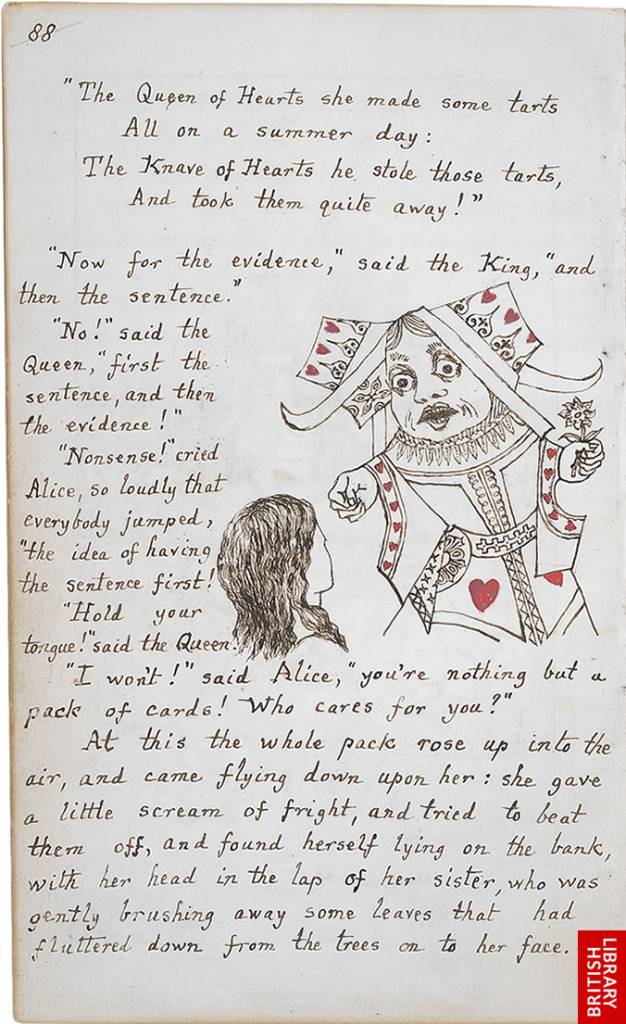 88
"The Queen of Hearts she made some tarts
All on a summer day:
The Knave of Hearts he stole those tarts,
And took them quite away!"
"Now for the evidence," said the King, "and
then the sentence."
"No!" said the
Queen, "first the
sentence, and then
the evidence!"
"Nonsense!" cried
Alice, so loudly that
everybody jumped,
"the idea of having
the sentence first!
"Hold your
tongue!" said the Queen.
"I won't!" said Alice, "you're nothing but a
pack of cards! Who cares for you?"
At this the whole pack rose up into the
air, and came flying down upon her: she gave
a little scream of fright, and tried to beat
them off, and found herself lying on the bank,
with her head in the lap of her sister, who was
gently brushing away some leaves that had
fluttered down from the trees on to her face.
BRITISH
LIBRARY